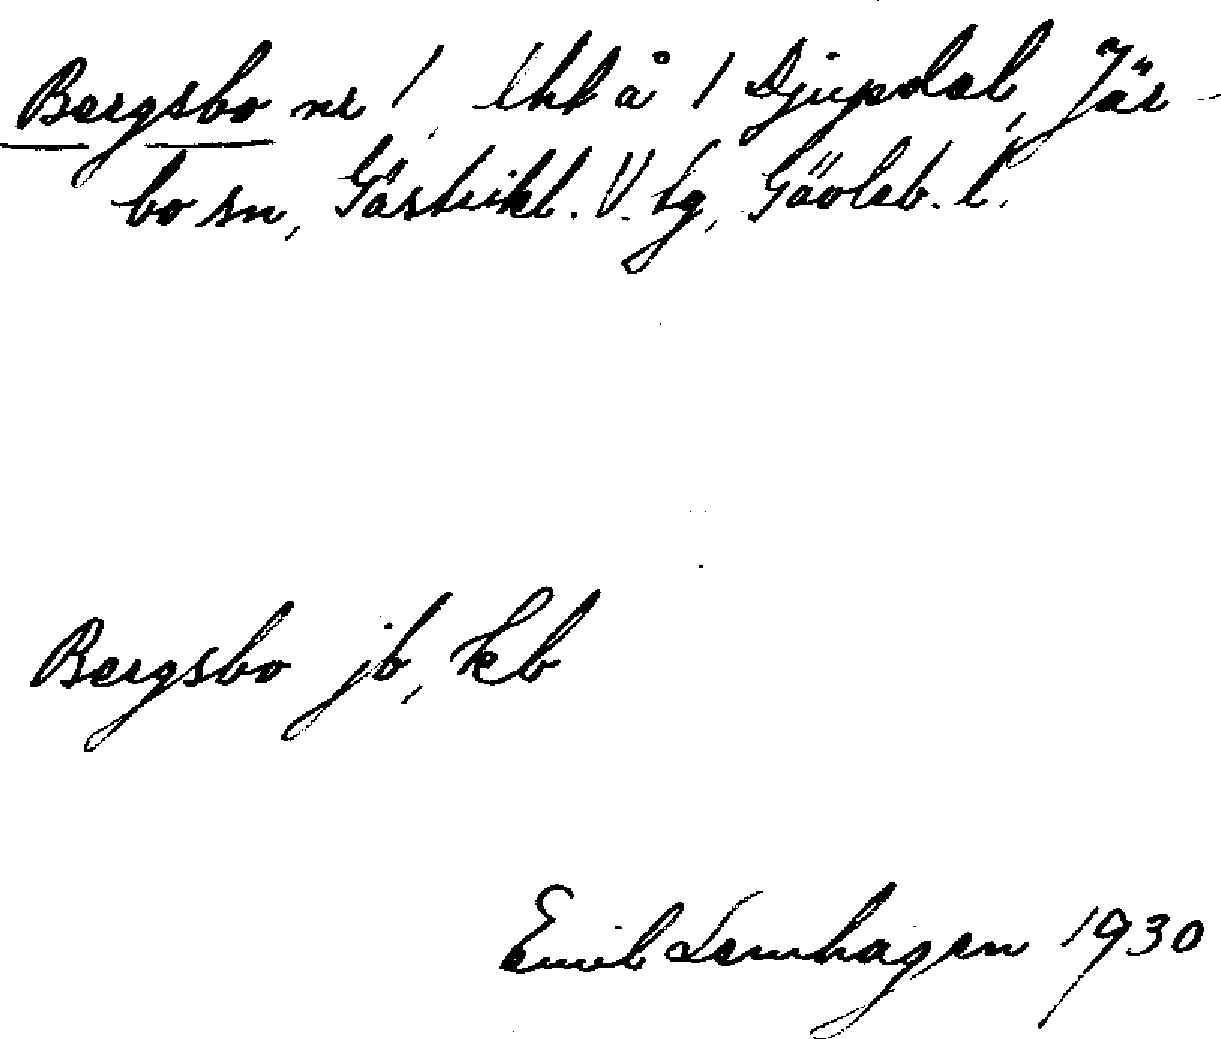 Bergsbo nr 1, lht å 1 Djupdal, Jär-
bo sn, Gästrikl. V. tg, Gävleb. l.
Bergsbo jb, kb
Emil Lernhagen 1930